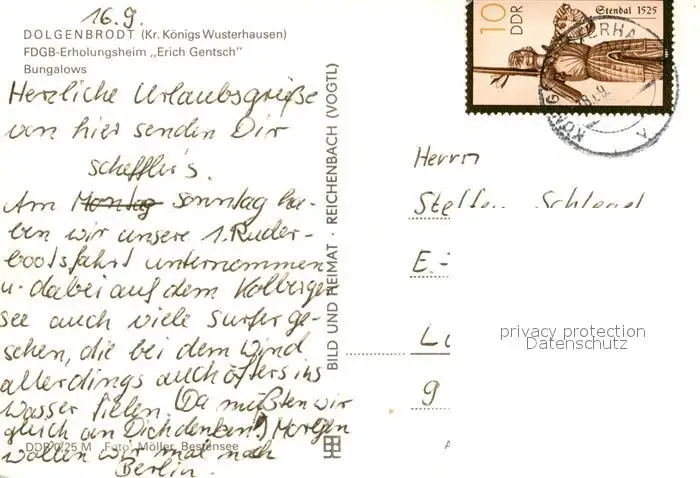 16.9.
DOLGENBRODT (Kr. Königs Wusterhausen)
FDGB-Erholungsheim „Erich Gentsch"
Bungalows
Herzliche Urlaubsgrüße
von hier senden Dir
Scheffler's.
Am Montag Sonntag ha-
ben wir unsere 1. Ruder-
bootsfahrt unternommen
u. dabei auf dem Kolberger
See auch viele Surfer ge-
sehen, die bei dem Wind
allerdings auch öfters ins
Wasser fielen. (Da mußten wir
gleich an Dich denken!) Morgen
wollen wir mal nach
Berlin.
DDR 0,25 M Foto: Möller, Bestensee
BILD UND HEIMAT · REICHENBACH (VOGTL)
10
DDR
Stendal 1525
Herrn
Steffen Schlegel
E.-
L
9
A
privacy protection
Datenschutz